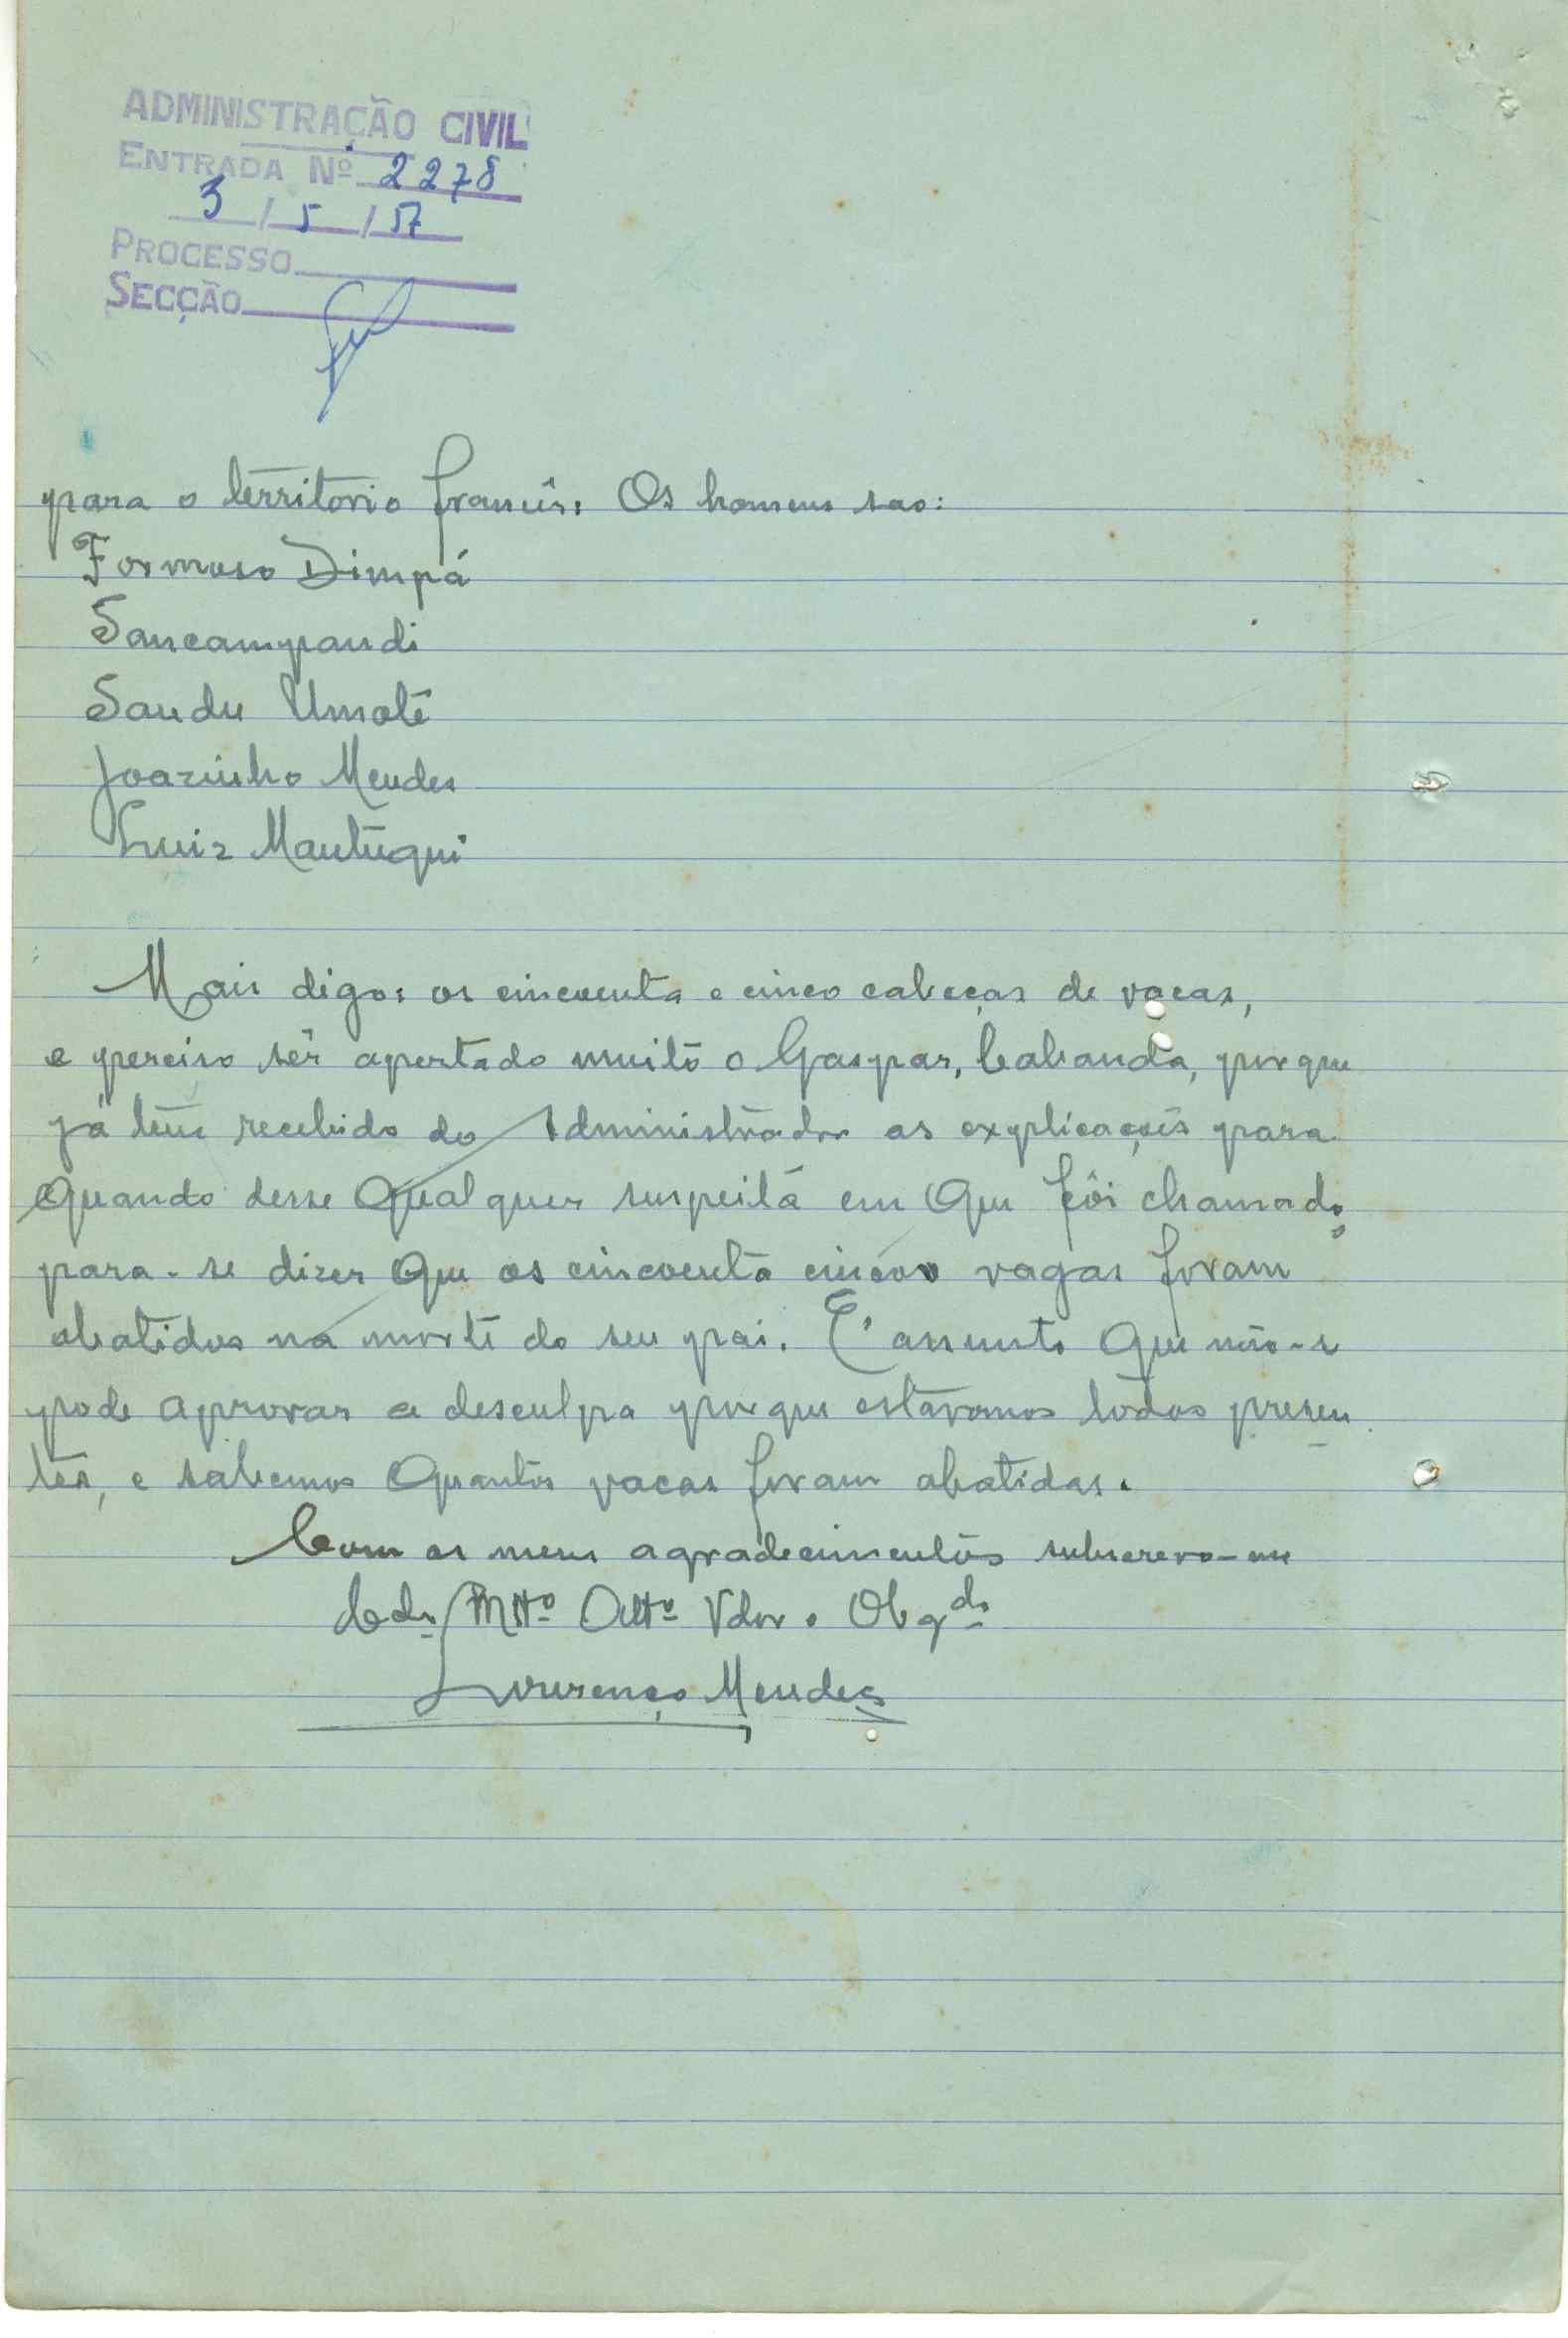 ADMINISTRAÇÃO CIVIL
ENTRADA Nº 2278
3 / 5 / 57
PROCESSO
SECÇÃO
para o territorio francês: Os homens sao:
Formoso Dimpá
Sancampandi
Sandu Umaté
Joazinho Mendes
Luiz Mantuqui
Mais digo: os cincoenta e cinco cabeças de vacas,
e perciso sêr apertado muito o Gaspar, Cabanda, porque
já tem recebido do Administrador as explicaçois para
Quando desse Qualquer suspeitá em Que fôi chamado
para-se dizer Que os cincoenta cinco vagas foram
abatidos na morte do seu pai. É assunto Que não-se
pode aprovar a desculpa porque estavamos todos presen
tes, e sabemos Quantos vacas foram abatidas.
Com os meus agradecimentos subscrevo-me
Cdo Mtto Atto Vdor. Obgdo
Lourenço Mendes